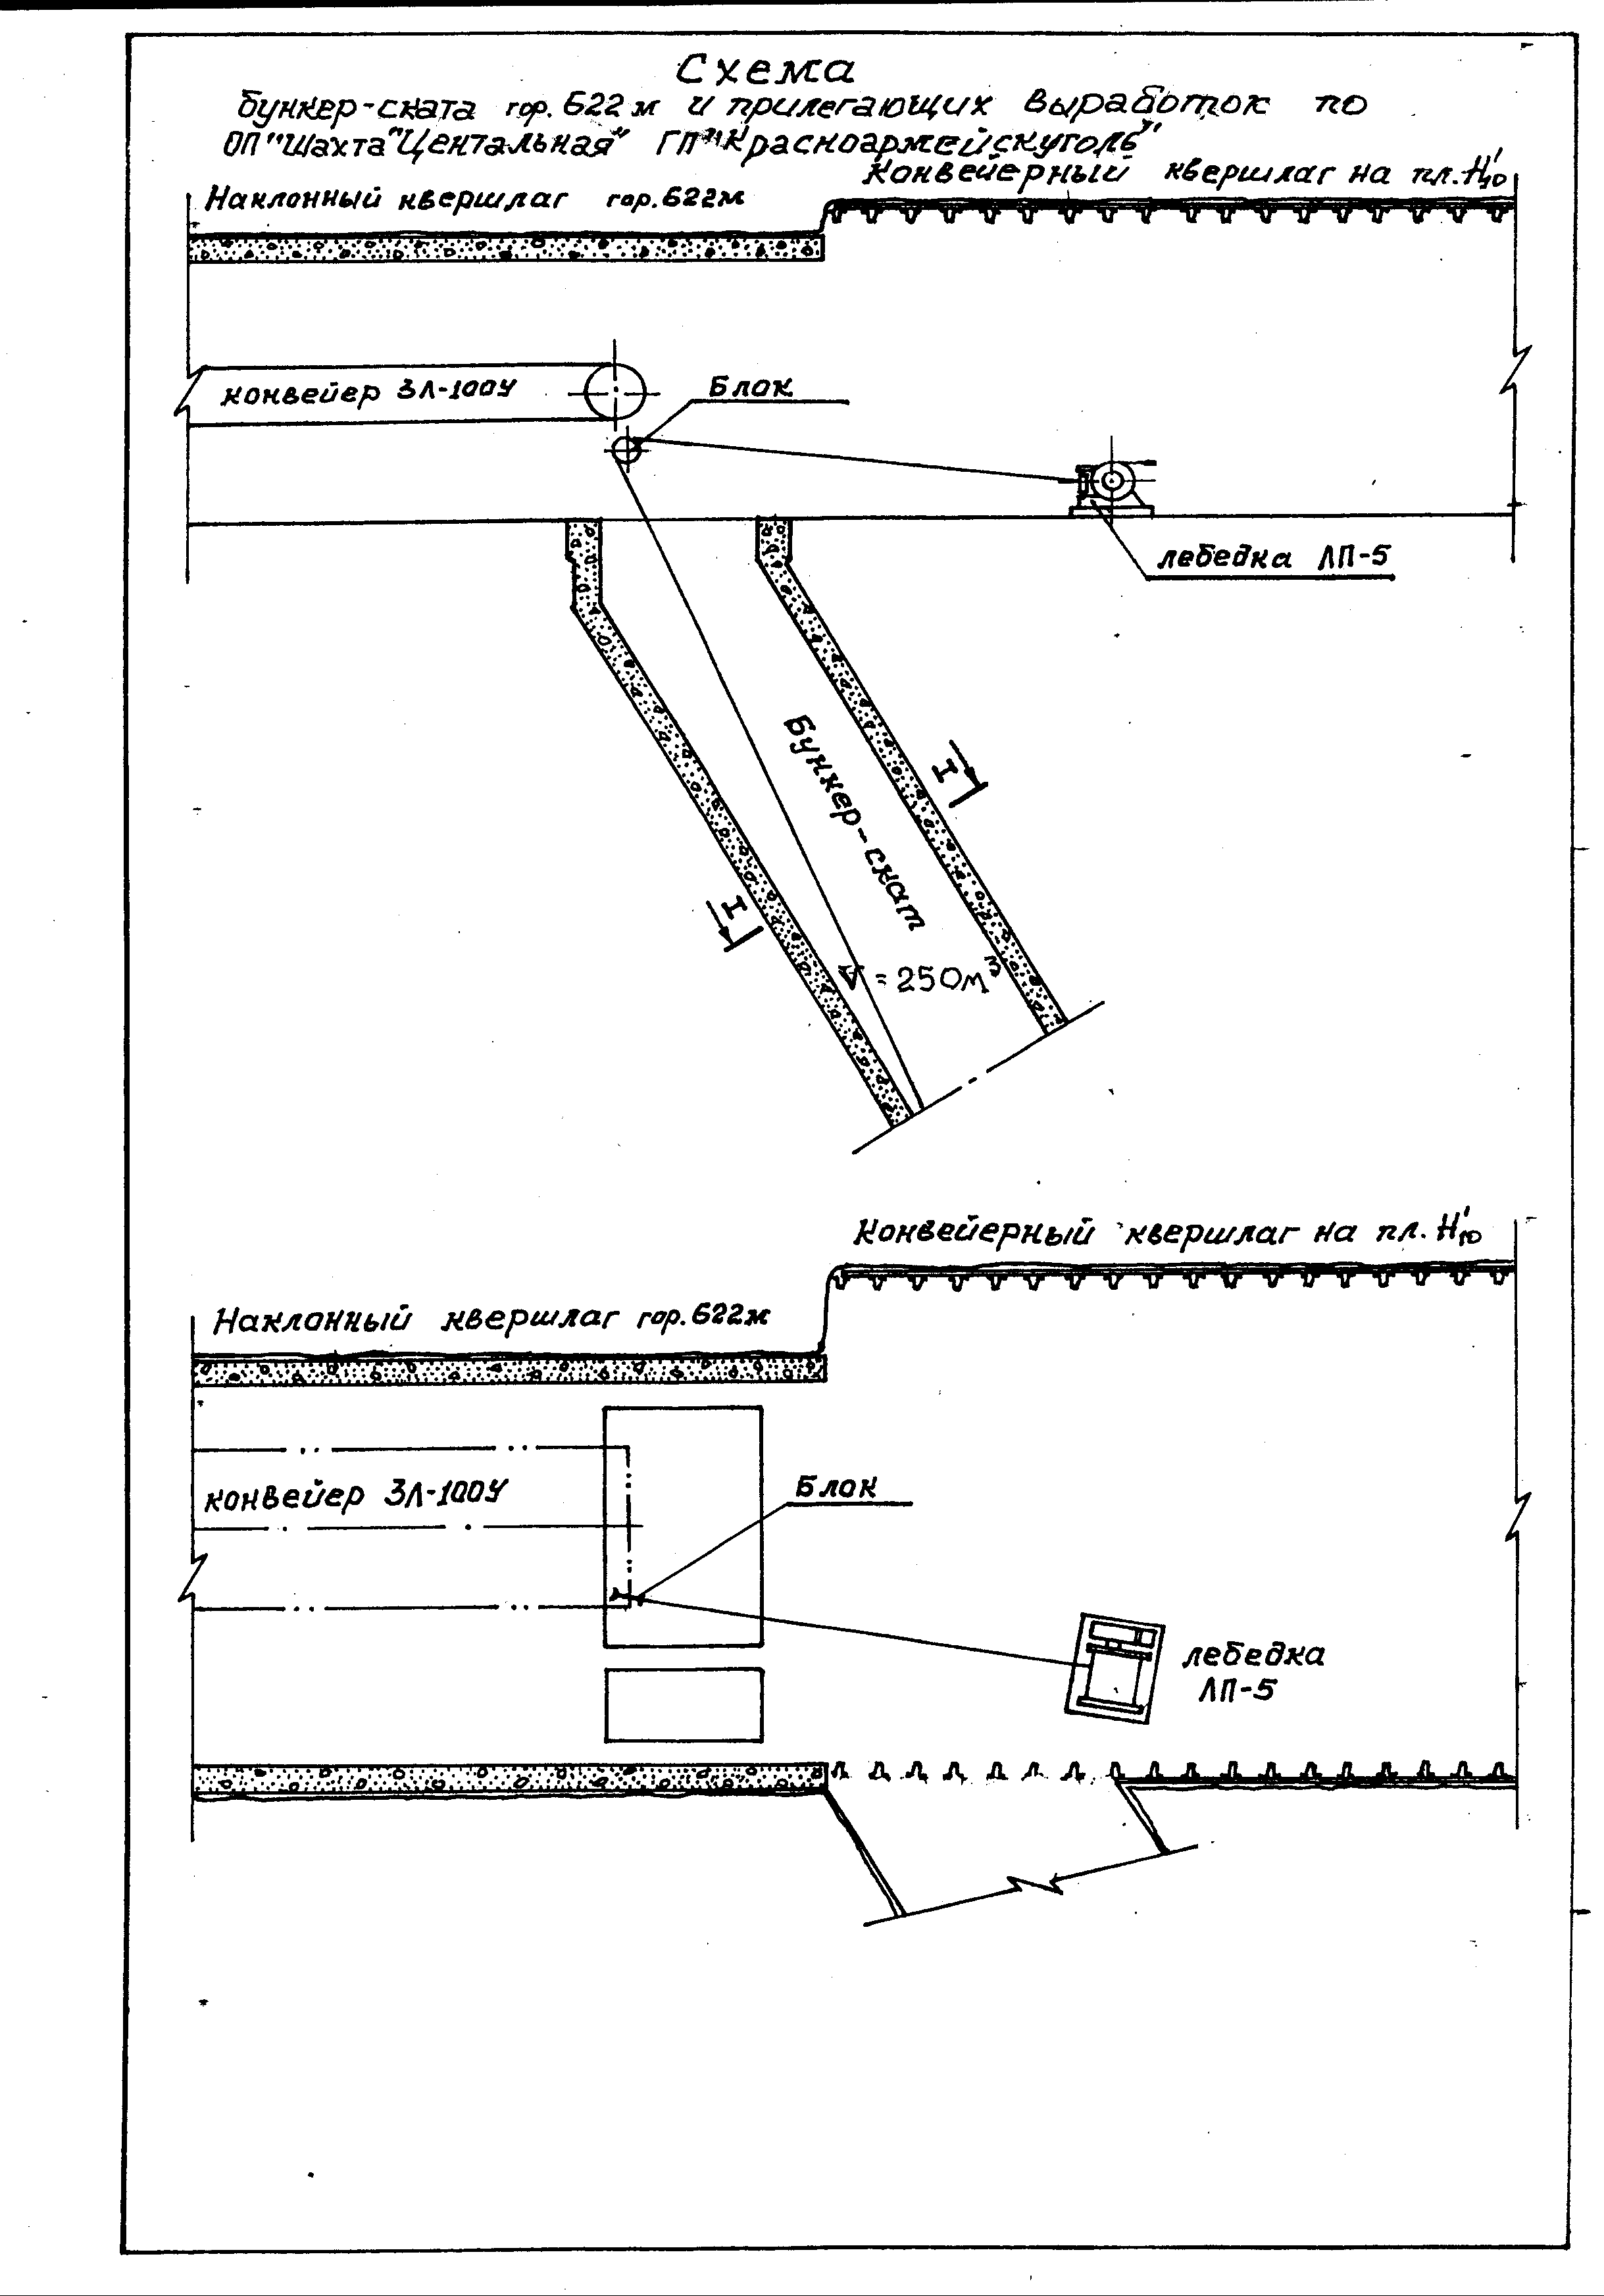 Схема
бункер-ската гор. 622 м и прилегающих выработок по
ОП "Шахта "Центальная" ГП "Красноармейскуголь"
Конвейерный квершлаг на пл. Н₁₀'
Наклонный квершлаг гор. 622м
конвейер 3Л-100У
Блок
лебедка ЛП-5
Бункер-скат
I
I
V = 250м³
Конвейерный квершлаг на пл. Н₁₀'
Наклонный квершлаг гор. 622м
конвейер 3Л-100У
Блок
лебедка
ЛП-5